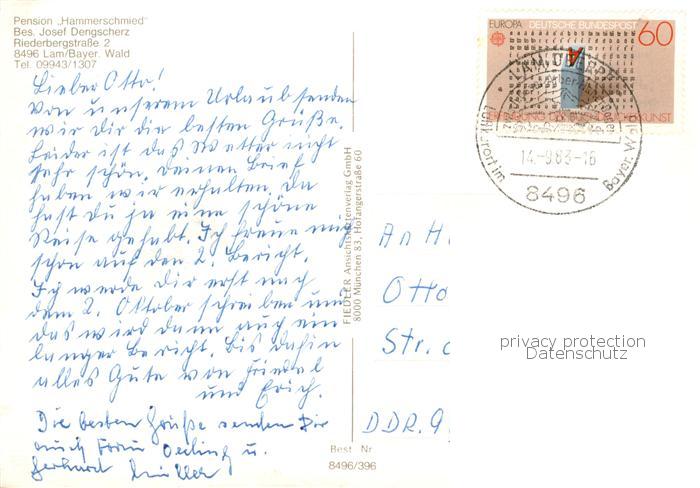 Pension „Hammerschmied"
Bes. Josef Dengscherz
Riederbergstraße 2
8496 Lam/Bayer. Wald
Tel. 09943/1307
Lieber Otto!
Von unserem Urlaub senden
wir Dir die besten Grüße.
Leider ist das Wetter nicht
sehr schön. Deinen Brief
haben wir erhalten. Da
hast Du ja eine schöne
Reise gehabt. Ich freue mich
schon auf den 2. Bericht.
Ich werde Dir erst nach
dem 2. Oktober schreiben und
das wird dann auch ein
langer Bericht. Bis dahin
alles Gute von Friedel
und Erich.
Die besten Grüße senden Dir
auch Frau u.
Gerhard Müller
FIEDLER Ansichtskartenverlag GmbH
8000 München 83, Hofangerstraße 60
Best Nr
8496/396
EUROPA DEUTSCHE BUNDESPOST 60
LAM, OBERPF
14.-9.83-16
8496
Bayer. Wald
An H
Otto
Str.
DDR. 9
privacy protection
Datenschutz